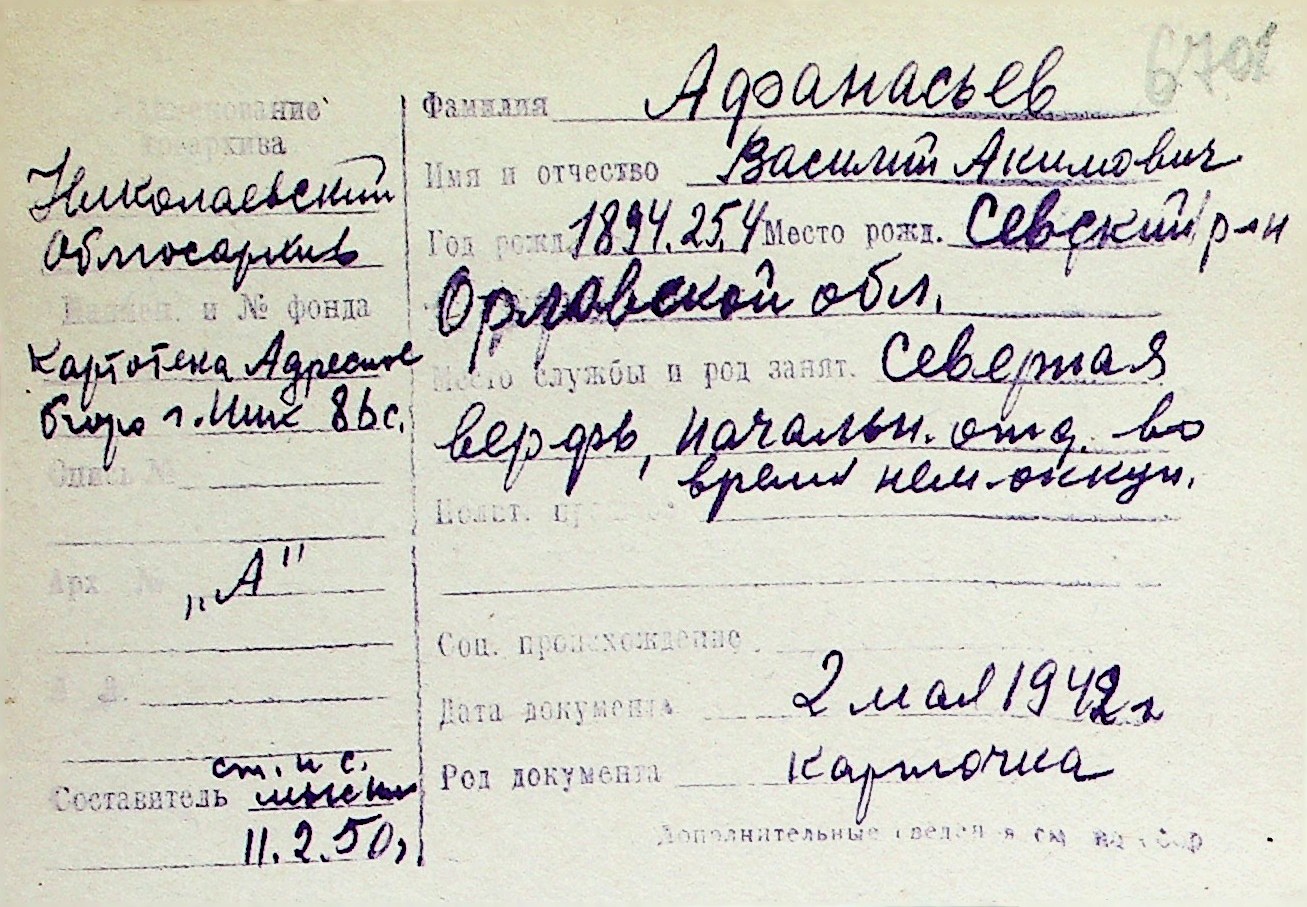 6701
Наименование
госархива
Николаевский
Облгосархив
Наимен. и № фонда
Картотека Адресное
бюро г. Ник
Опись №
Арх №
„А"
Составитель ст. н с.
11.2.50г
Фамилия Афанасьев
Имя и отчество Василий Акимович
Год рожд. 1894.25.4 Место рожд. Севский р-н
Орловской обл.
Место службы и род занят. Северная
верфь, начальн. отд. во
время нем. оккуп.
Полит.
Соц. происхождение
Дата документа 2 мая 1942 г
Род документа карточка
Дополнительные сведения см на обор